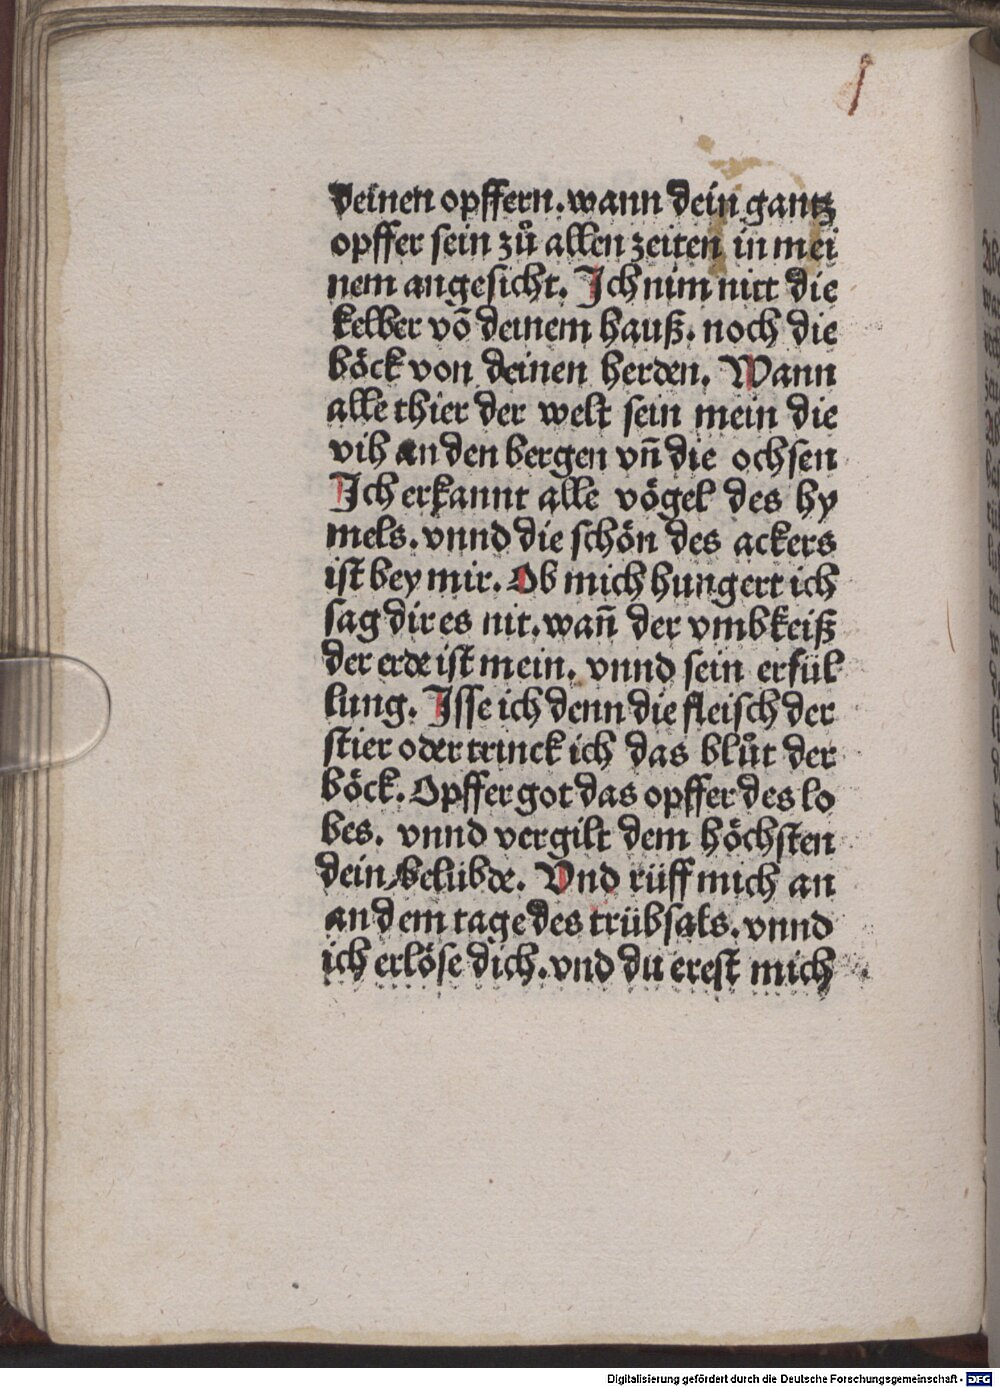 deinen opffern. wann dein gantz
opffer sein zů allen zeiten in mei
nem angesicht. Ich nim nitt die
kelber võ deinem hauß. noch die
böck von deinen herden. Wann
alle thier der welt sein mein die
vih an den bergen vñ die ochsen
Ich erkannt alle vögel des hy
mels. vnnd die schön des ackers
ist bey mir. Ob mich hungert ich
sag dir es nit. wañ der vmbkeiß
der erde ist mein. vnnd sein erfül
lung. Isse ich denn die fleisch der
stier oder trinck ich das blůt der
böck. Opffer got das opffer des lo
bes. vnnd vergilt dem höchsten
dein gelübde. Vnd rüff mich an
an dem tage des trübsals. vnnd
ich erlöse dich. vnd du erest mich
Digitalisierung gefördert durch die Deutsche Forschungsgemeinschaft - DFG